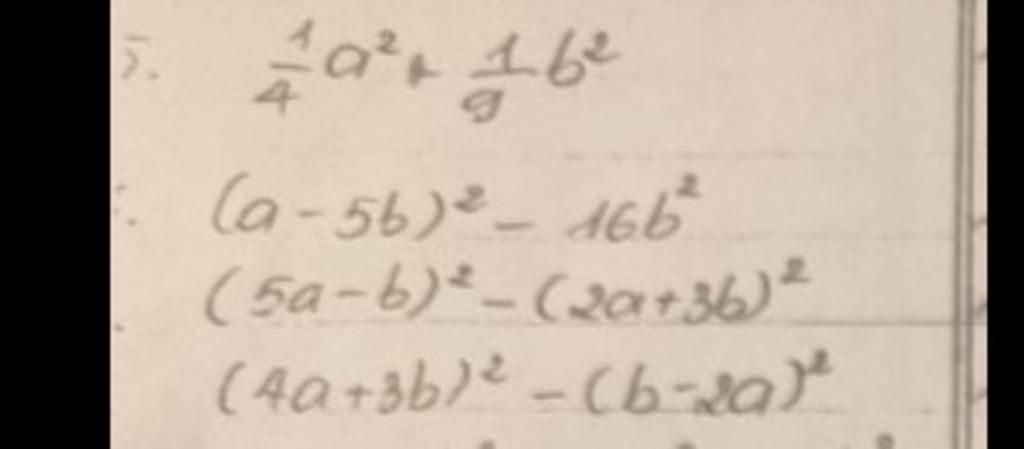 5. 1/4 a² + 1/9 b²
(a - 5b)² - 16b²
(5a - b)² - (2a + 3b)²
(4a + 3b)² - (b - 2a)²